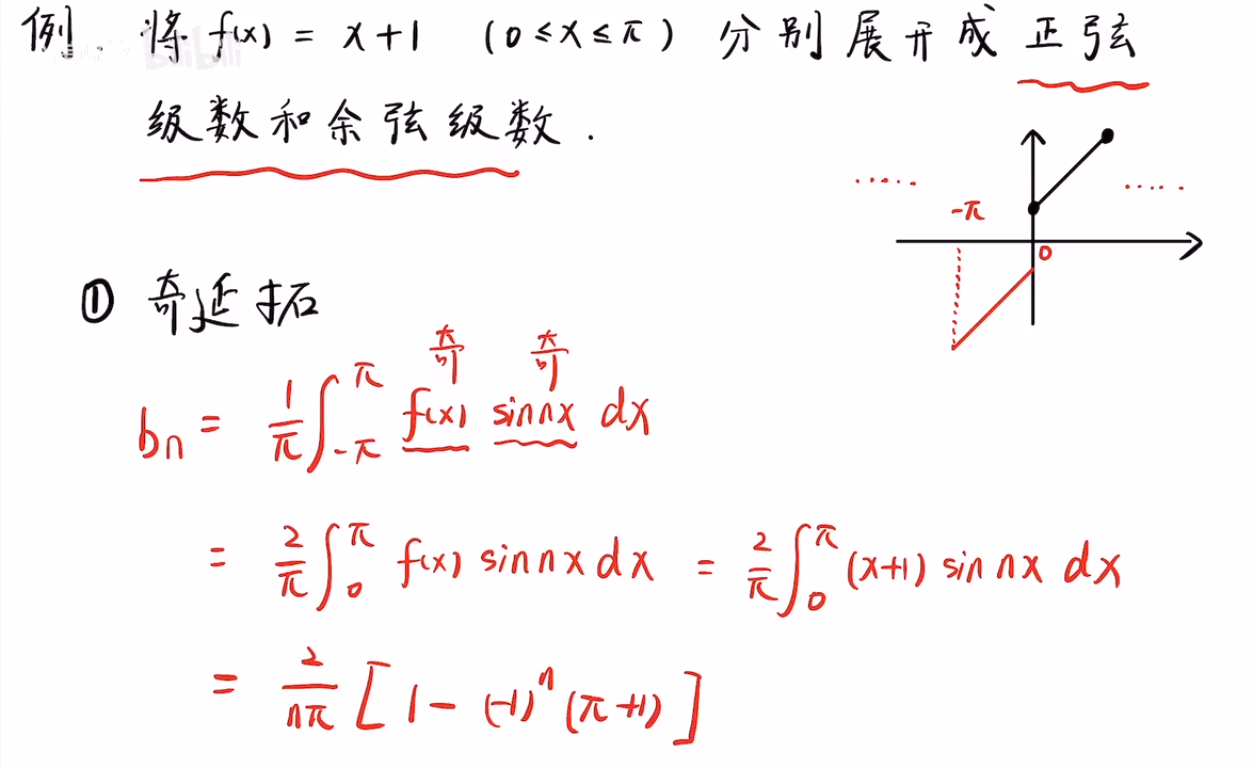 例. 将 f(x) = x+1 (0≤x≤π) 分别展开成 正弦
级数和余弦级数.
-π
0
① 奇延拓
奇 奇
bn = 1/π ∫_{-π}^{π} f(x) sinnx dx
= 2/π ∫_0^π f(x) sinnx dx = 2/π ∫_0^π (x+1) sin nx dx
= 2/(nπ) [1-(-1)^n (π+1)]